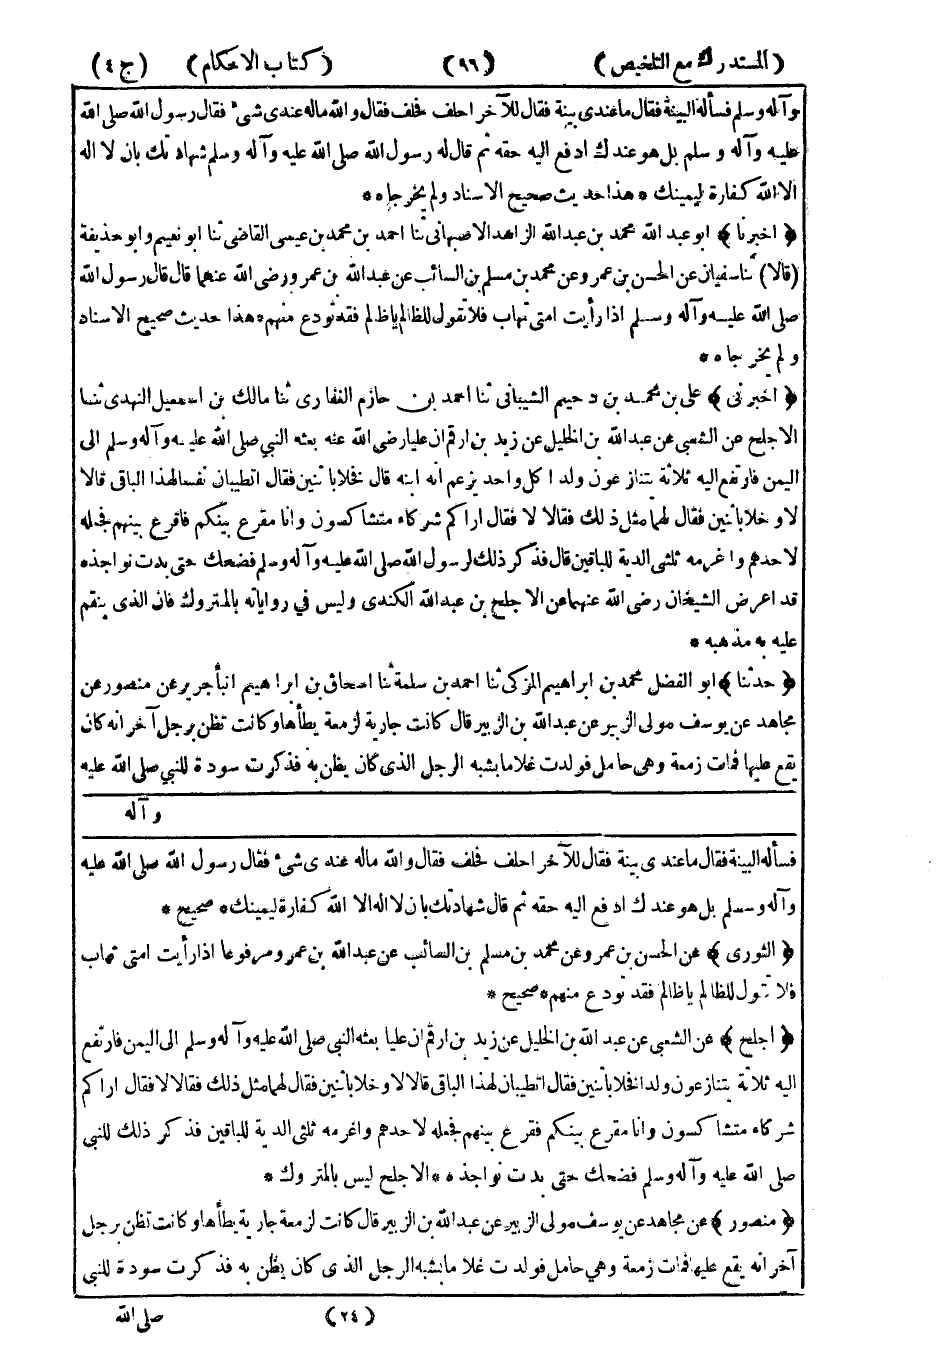 (المستدرك مع التلخيص) (٩٦) (كتاب الاحكام) (ج ٤)
وآله وسلم فسأله البينة فقال ما عندى بينة فقال للآخر احلف فحلف فقال والله ماله عندى شىء فقال رسول الله صلى الله
عليه وآله وسلم بل هو عندك ادفع اليه حقه ثم قال له رسول الله صلى الله عليه وآله وسلم شهادتك بان لا اله
الا الله كفارة ليمينك * هذا حديث صحيح الاسناد ولم يخرجاه *
﴿ اخبرنا ﴾ ابو عبد الله محمد بن عبد الله الزاهد الاصبهانى ثنا احمد بن محمد بن عيسى القاضى ثنا ابو نعيم وابو حذيفة
(قالا) ثنا سفيان عن الحسن بن عمرو عن محمد بن مسلم بن السائب عن عبد الله بن عمرو رضى الله عنهما قال قال رسول الله
صلى الله عليه وآله وسلم اذا رأيت امتى تهاب فلا تقول للظالم يا ظالم فقد تودع منهم * هذا حديث صحيح الاسناد
ولم يخرجاه *
﴿ اخبرنى ﴾ على بن محمد بن دحيم الشيبانى ثنا احمد بن حازم الغفارى ثنا مالك بن اسمعيل النهدى ثنا
الاجلح عن الشعبى عن عبد الله بن الخليل عن زيد بن ارقم ان عليا رضى الله عنه بعثه النبي صلى الله عليه وآله وسلم الى
اليمن فارتفع اليه ثلاثة يتنازعون ولدا كل واحد يزعم انه ابنه قال فخلا باثنين فقال اتطيبان نفسا لهذا الباقى قالا
لا وخلا باثنين فقال لهما مثل ذلك فقالا لا فقال اراكم شركاء متشاكسون وانا مقرع بينكم فاقرع بينهم فجعله
لاحدهم واغرمه ثلثى الدية للباقين قال فذكر ذلك لرسول الله صلى الله عليه وآله وسلم فضحك حتى بدت نواجذه
قد اعرض الشيخان رضى الله عنهما عن الاجلح بن عبد الله الكندى وليس في رواياته بالمتروك فان الذى ينقم
عليه به مذهبه *
﴿ حدثنا ﴾ ابو الفضل محمد بن ابراهيم المزكى ثنا احمد بن سلمة ثنا اسحاق بن ابراهيم انبأ جرير عن منصور عن
مجاهد عن يوسف مولى الزبير عن عبد الله بن الزبير قال كانت جارية لزمعة يطأها وكانت تظن برجل آخر انه كان
يقع عليها فمات زمعة وهى حامل فولدت غلاما يشبه الرجل الذى كان يظن به فذكرت سودة للنبي صلى الله عليه
وآله
فسأله البينة فقال ما عندى بينة فقال للآخر احلف فحلف فقال والله ماله عندى شىء فقال رسول الله صلى الله عليه
وآله وسلم بل هو عندك ادفع اليه حقه ثم قال شهادتك بان لا اله الا الله كفارة ليمينك * صحيح *
﴿ الثورى ﴾ عن الحسن بن عمرو عن محمد بن مسلم بن السائب عن عبد الله بن عمرو مرفوعا اذا رأيت امتى تهاب
فلا تقول للظالم يا ظالم فقد تودع منهم * صحيح *
﴿ اجلح ﴾ عن الشعبى عن عبد الله بن الخليل عن زيد بن ارقم ان عليا بعثه النبى صلى الله عليه وآله وسلم الى اليمن فارتفع
اليه ثلاثة يتنازعون ولدا فخلا باثنين فقال اتطيبان لهذا الباقى قالا لا وخلا باثنين فقال لهما مثل ذلك فقالا لا فقال اراكم
شركاء متشاكسون وانا مقرع بينكم فقرع بينهم فجعله لاحدهم واغرمه ثلثى الدية للباقين فذكر ذلك للنبى
صلى الله عليه وآله وسلم فضحك حتى بدت نواجذه * الاجلح ليس بالمتروك *
﴿ منصور ﴾ عن مجاهد عن يوسف مولى الزبير عن عبد الله بن الزبير قال كانت لزمعة جارية يطأها وكانت تظن برجل
آخر انه يقع عليها فمات زمعة وهي حامل فولدت غلاما يشبه الرجل الذى كان يظن به فذكرت سودة للنبى
(٢٤) صلى الله